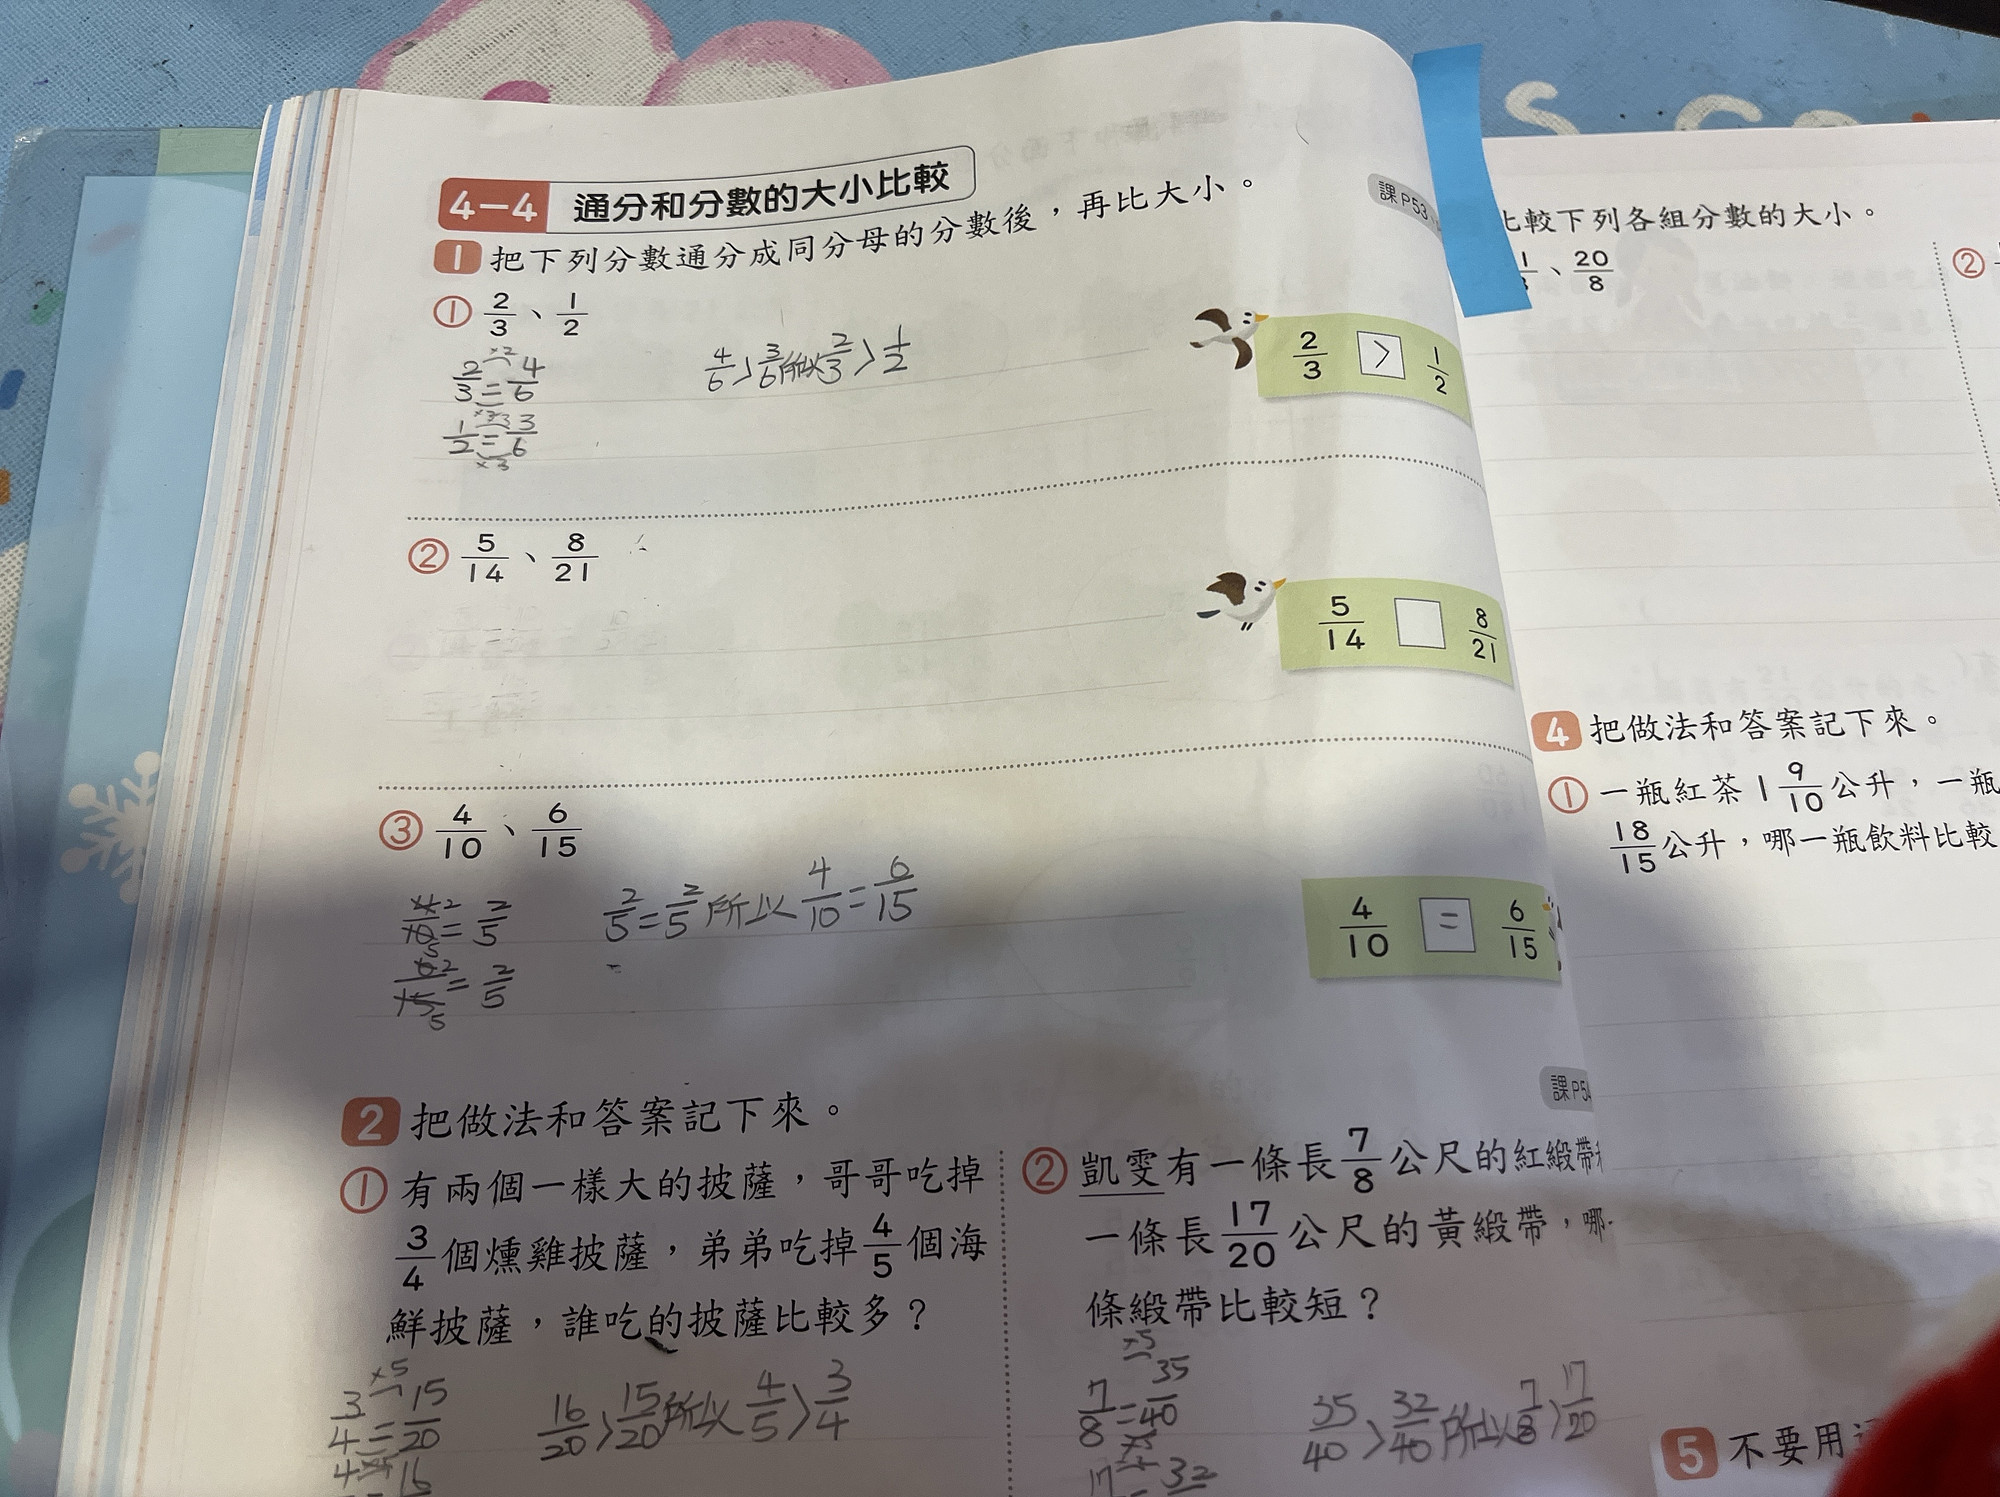 4-4 通分和分數的大小比較
課P53
1 把下列分數通分成同分母的分數後，再比大小。
① 2/3、1/2
2/3 = 4/6 ×2
4/6 > 3/6 所以 2/3 > 1/2
2/3 > 1/2
1/2 = 3/6 ×3 ×3
② 5/14、8/21
5/14 □ 8/21
③ 4/10、6/15
4/10 = 2/5
2/5 = 2/5 所以 4/10 = 6/15
4/10 = 6/15
6/15 = 2/5
課P54
2 把做法和答案記下來。
① 有兩個一樣大的披薩，哥哥吃掉
3/4個燻雞披薩，弟弟吃掉4/5個海
鮮披薩，誰吃的披薩比較多？
3/4 = 15/20 ×5
16/20 > 15/20 所以 4/5 > 3/4
4 16
② 凱雯有一條長7/8公尺的紅緞帶
一條長17/20公尺的黃緞帶，哪
條緞帶比較短？
7/8 = 35/40 ×5 ×5
35/40 > 32/40 所以 7/8 > 17/20
17 = 32
比較下列各組分數的大小。
、20/8
②
4 把做法和答案記下來。
① 一瓶紅茶1 9/10公升，一瓶
18/15公升，哪一瓶飲料比較
5 不要用